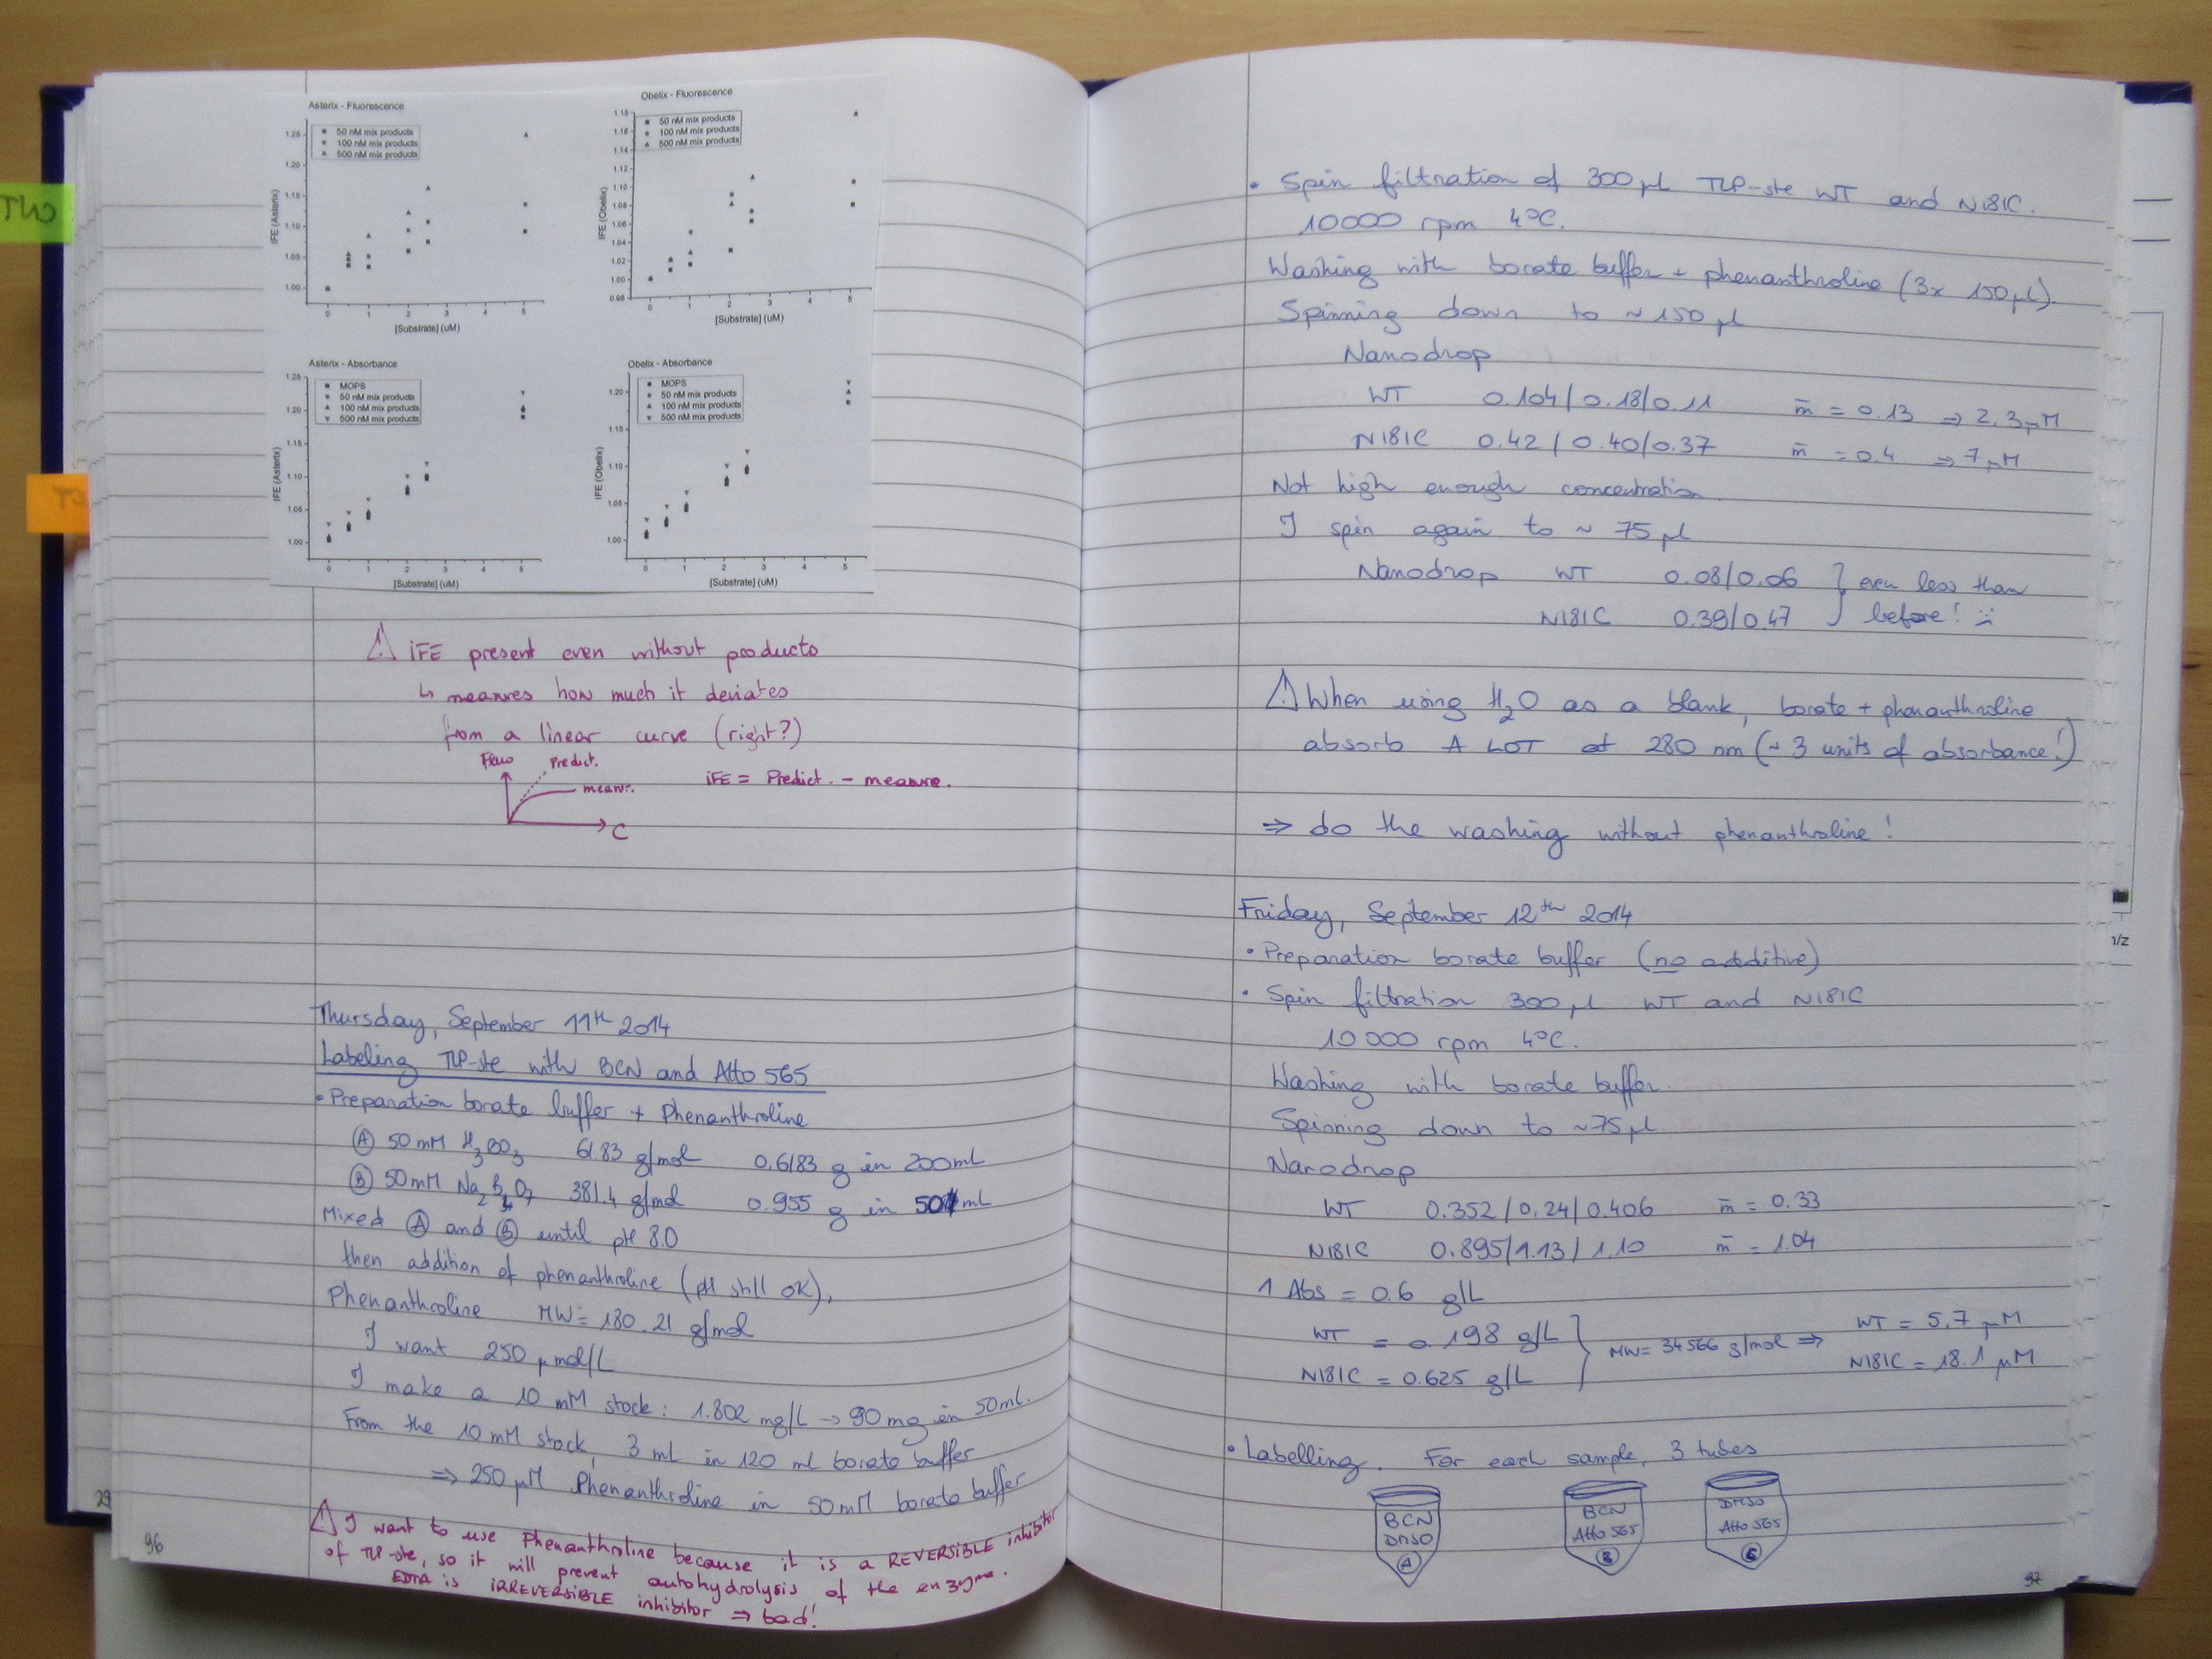 TLP
Asterix - Fluorescence
50 nM mix products
100 nM mix products
500 nM mix products
IFE (Asterix)
1.25
1.20
1.15
1.10
1.05
1.00
0 1 2 3 4 5
[Substrate] (uM)
Obelix - Fluorescence
50 nM mix products
100 nM mix products
500 nM mix products
IFE (Obelix)
1.18
1.16
1.14
1.12
1.10
1.08
1.06
1.04
1.02
1.00
0.98
0 1 2 3 4 5
[Substrate] (uM)
Asterix - Absorbance
MOPS
50 nM mix products
100 nM mix products
500 nM mix products
IFE (Asterix)
1.25
1.20
1.15
1.10
1.05
1.00
0 1 2 3 4 5
[Substrate] (uM)
Obelix - Absorbance
MOPS
50 nM mix products
100 nM mix products
500 nM mix products
IFE (Obelix)
1.20
1.15
1.10
1.05
1.00
0 1 2 3 4 5
[Substrate] (uM)
⚠ iFE present even without products
↳ measures how much it deviates
from a linear curve (right?)
Fluo Predict.
measur.
C
iFE = Predict. - measure.
Thursday, September 11th 2014
Labeling TLP-ste with BCN and Atto 565
• Preparation borate buffer + Phenanthroline
Ⓐ 50 mM H3BO3 61.83 g/mol 0.6183 g in 200ml
Ⓑ 50mM Na2B4O7 381.4 g/mol 0.955 g in 50 ml
Mixed Ⓐ and Ⓑ until pH 8.0
then addition of phenanthroline (pH still OK),
Phenanthroline MW = 180.21 g/mol
I want 250 µmol/L
I make a 10 mM stock: 1.802 mg/L → 90 mg in 50ml.
From the 10 mM stock, 3 ml in 120 ml borate buffer
⇒ 250 µM Phenanthroline in 50 mM borate buffer
⚠ I want to use Phenanthroline because it is a REVERSIBLE inhibitor
of TLP-ste, so it will prevent autohydrolysis of the enzyme.
EDTA is IRREVERSIBLE inhibitor ⇒ bad!
96
• Spin filtration of 300 µl TLP-ste WT and N181C.
10000 rpm 4°C.
Washing with borate buffer + phenanthroline (3x 150 µl).
Spinning down to ~ 150 µl
Nanodrop
WT 0.104/0.18/0.11 m̄ = 0.13 ⇒ 2.3 µM
N181C 0.42/0.40/0.37 m̄ = 0.4 ⇒ 7 µM
Not high enough concentration
I spin again to ~ 75 µl
Nanodrop WT 0.08/0.06 } even less than
N181C 0.39/0.47 } before! :(
⚠ When using H2O as a blank, borate + phenanthroline
absorb A LOT at 280 nm (~ 3 units of absorbance!)
⇒ do the washing without phenanthroline!
Friday, September 12th 2014
• Preparation borate buffer (no additive)
• Spin filtration 300 µl WT and N181C
10 000 rpm 4°C.
Washing with borate buffer.
Spinning down to ~75 µl.
Nanodrop
WT 0.352/0.24/0.406 m̄ = 0.33
N181C 0.895/1.13/1.10 m̄ = 1.04
1 Abs = 0.6 g/L
WT = 0.198 g/L } MW = 34566 g/mol ⇒ WT = 5.7 µM
N181C = 0.625 g/L N181C = 18.1 µM
• Labelling. For each sample, 3 tubes
BCN
DMSO
Ⓐ
BCN
Atto 565
Ⓑ
DMSO
Atto 565
Ⓒ
97
m/z